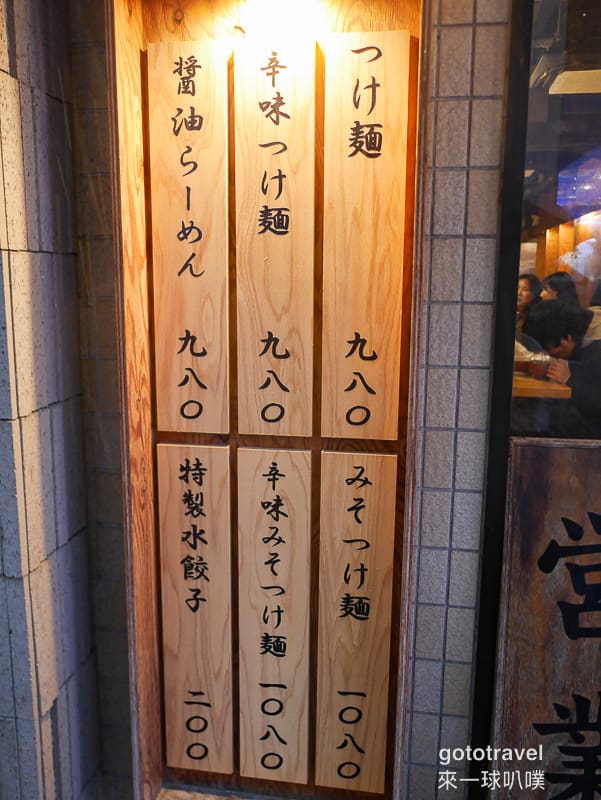 つけ麺 九八〇
辛味つけ麺 九八〇
醤油らーめん 九八〇
みそつけ麺 一〇八〇
辛味みそつけ麺 一〇八〇
特製水餃子 二〇〇
営業
gototravel
來一球叭噗